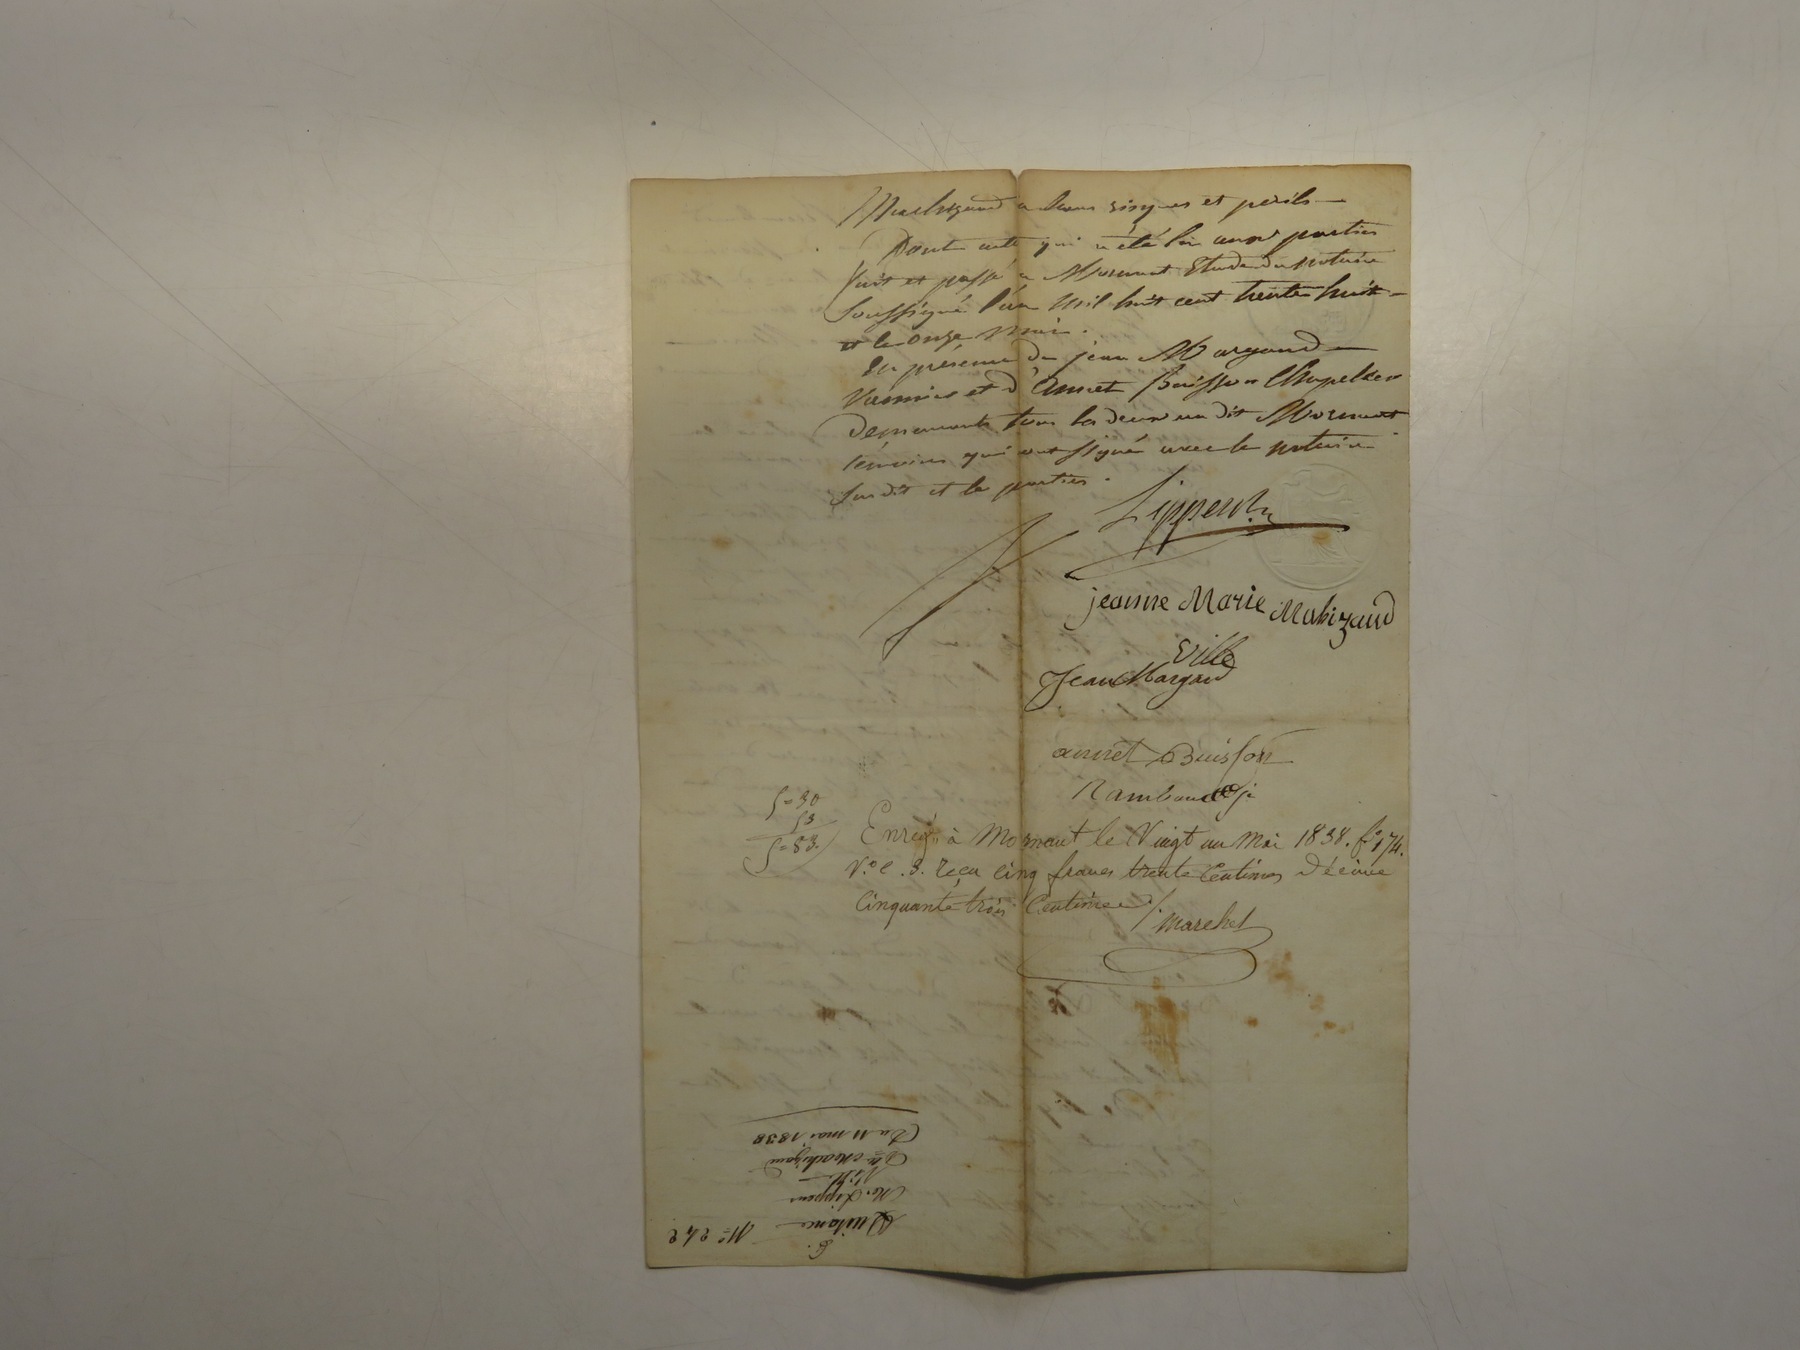 Machizaud a leurs risques et perils
Dont acte qui a été lu aux parties
fait et passé a Mornant Etude du notaire
Soussigné l'an Mil huit cent trente huit
et le onze Mai.
En présence de jean Margaud
et d'Annet Buisson Chapelier
demeurants tous les deux au dit Mornant
témoins qui ont signé avec le notaire
susdit et les parties.
jeanne Marie Mahizaud
Ville
Jean Margaud
annet Buisson
5=30
53
5=83
Enreg. à Mornant le Vingt un Mai 1838. f° 174.
V° C. 3. reçu Cinq francs trente Centimes Décime
Cinquante trois Centimes
Marchet
N° 242
Quitance
Ville
Machizaud
Du 11 mai 1838